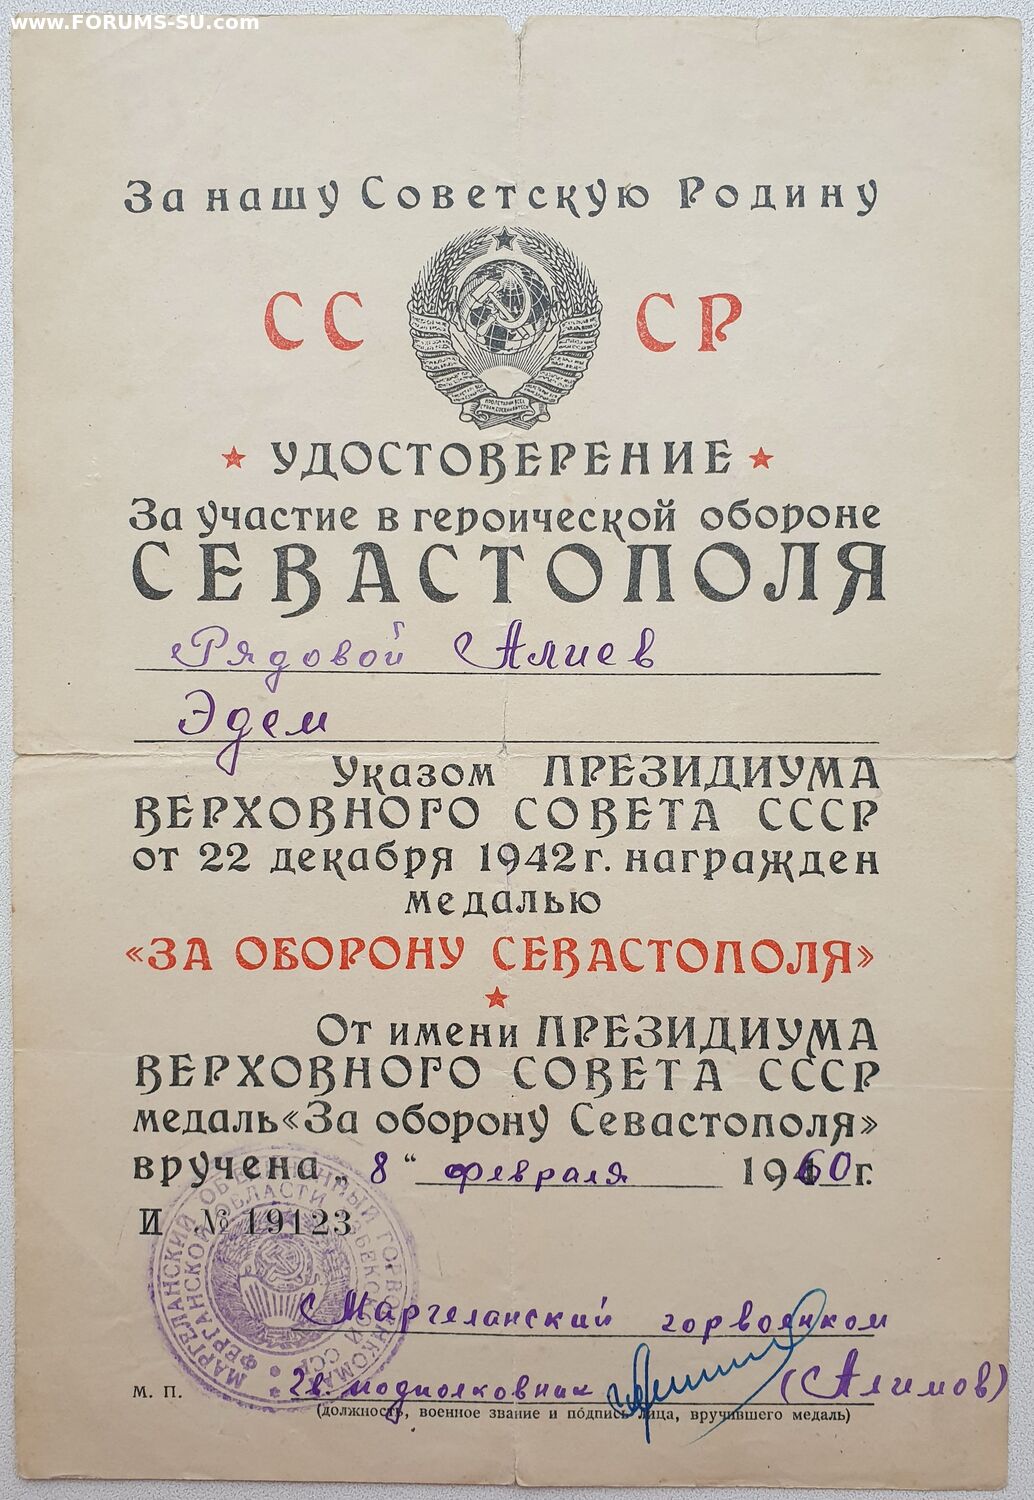 www.FORUMS-SU.com
За нашу Советскую Родину
СС СР
ПРОЛЕТАРИИ ВСЕХ СТРАН, СОЕДИНЯЙТЕСЬ
УДОСТОВЕРЕНИЕ
За участие в героической обороне
СЕВАСТОПОЛЯ
Рядовой Алиев
Эдем
Указом ПРЕЗИДИУМА
ВЕРХОВНОГО СОВЕТА СССР
от 22 декабря 1942 г. награжден
медалью
«ЗА ОБОРОНУ СЕВАСТОПОЛЯ»
От имени ПРЕЗИДИУМА
ВЕРХОВНОГО СОВЕТА СССР
медаль «За оборону Севастополя»
вручена „ 8 “ февраля 1960 г.
И № 19123
МАРГЕЛАНСКИЙ ОБЪЕДИНЕННЫЙ ГОРВОЕНКОМАТ
ФЕРГАНСКОЙ ОБЛАСТИ УЗБЕКСКОЙ ССР
Маргеланский горвоенком
М. П. гв. подполковник (Алимов)
(должность, военное звание и подпись лица, вручившего медаль)